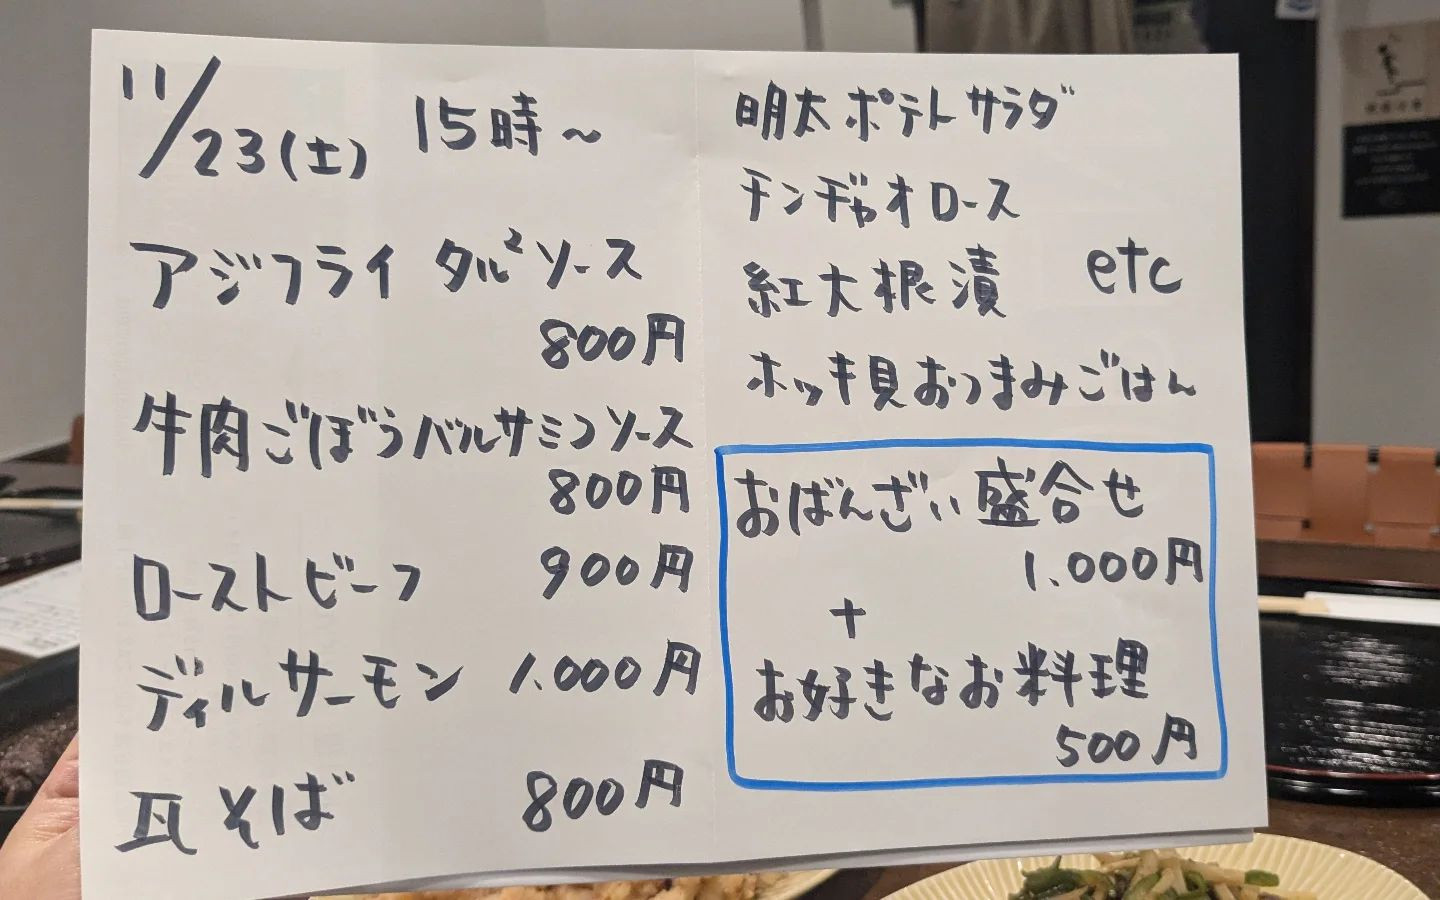 11/23(土) 15時~
アジフライ タル²ソース
800円
牛肉ごぼうバルサミコソース
800円
ローストビーフ 900円
ディルサーモン 1.000円
瓦そば 800円
明太ポテトサラダ
チンヂャオロース
紅大根漬 etc
ホッキ貝おつまみごはん
おばんざい盛合せ
1.000円
+
お好きなお料理
500円